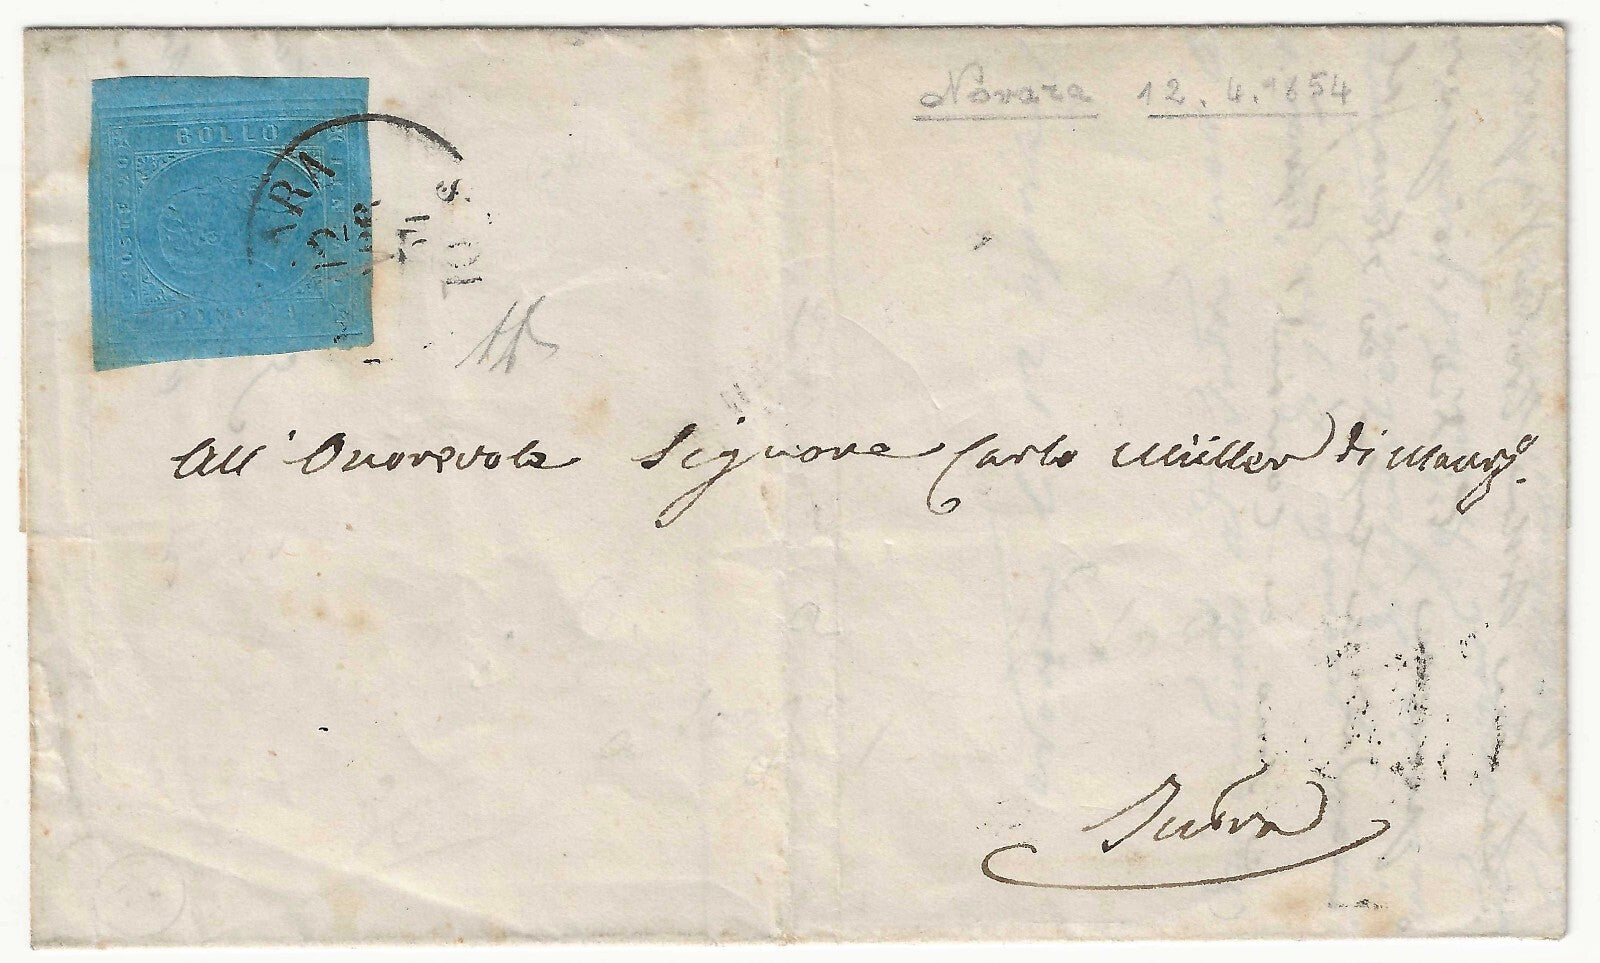 Novara 12.4.1854
BOLLO
POSTE
ARA
12
APR
10 S
All' Onorevole Signore Carlo Müller di Maurº.
Intra